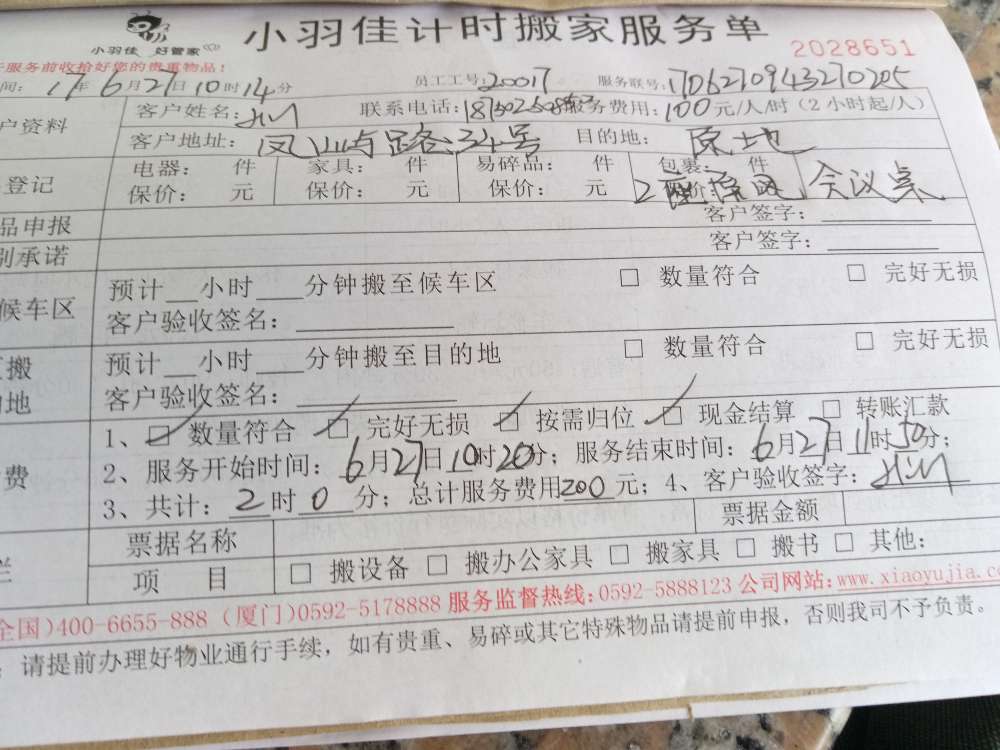 小羽佳 好管家
小羽佳计时搬家服务单
2028651
服务前收拾好您的贵重物品!
间: 17年6月27日10时14分 员工工号:20017 服务联号:1706270943270205
户资料 客户姓名: 联系电话: 服务费用:100元/人/时(2小时起/人)
客户地址: 凤山屿路34号 目的地: 原地
登记 电器: 件 家具: 件 易碎品: 件 包裹: 件
保价: 元 保价: 元 保价: 元 会议桌
品申报 客户签字:
别承诺 客户签字:
候车区 预计__小时___分钟搬至候车区 □ 数量符合 □ 完好无损
客户验收签名:
搬 预计__小时___分钟搬至目的地 □ 数量符合 □ 完好无损
地 客户验收签名:
1、☑ 数量符合 ☑ 完好无损 ☑ 按需归位 ☑ 现金结算 □ 转账汇款
费 2、服务开始时间: 6月27日10时20分; 服务结束时间: 6月27日11时50分;
3、共计: 2时 0 分; 总计服务费用200元; 4、客户验收签字:
栏 票据名称 票据金额
项 目 □ 搬设备 □ 搬办公家具 □ 搬家具 □ 搬书 □ 其他:
全国)400-6655-888 (厦门)0592-5178888 服务监督热线:0592-5888123 公司网站:www.xiaoyujia.co
: 请提前办理好物业通行手续,如有贵重、易碎或其它特殊物品请提前申报,否则我司不予负责。